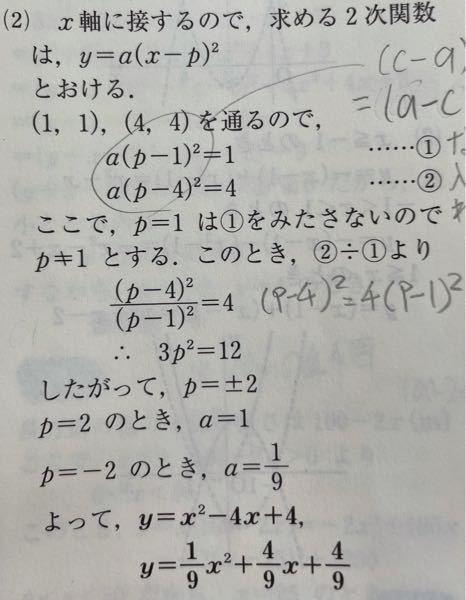 (2) x軸に接するので，求める2次関数
は，y=a(x−p)²
とおける．
(1, 1)，(4, 4) を通るので，
a(p−1)²=1 ……①
a(p−4)²=4 ……②
ここで，p=1 は①をみたさないので
p≠1 とする．このとき，②÷①より
(p−4)²/(p−1)²=4
∴ 3p²=12
したがって，p=±2
p=2 のとき，a=1
p=−2 のとき，a=1/9
よって，y=x²−4x+4,
y=1/9x²+4/9x+4/9
(c−a)
=(a−c
(P−4)²=4(P−1)²